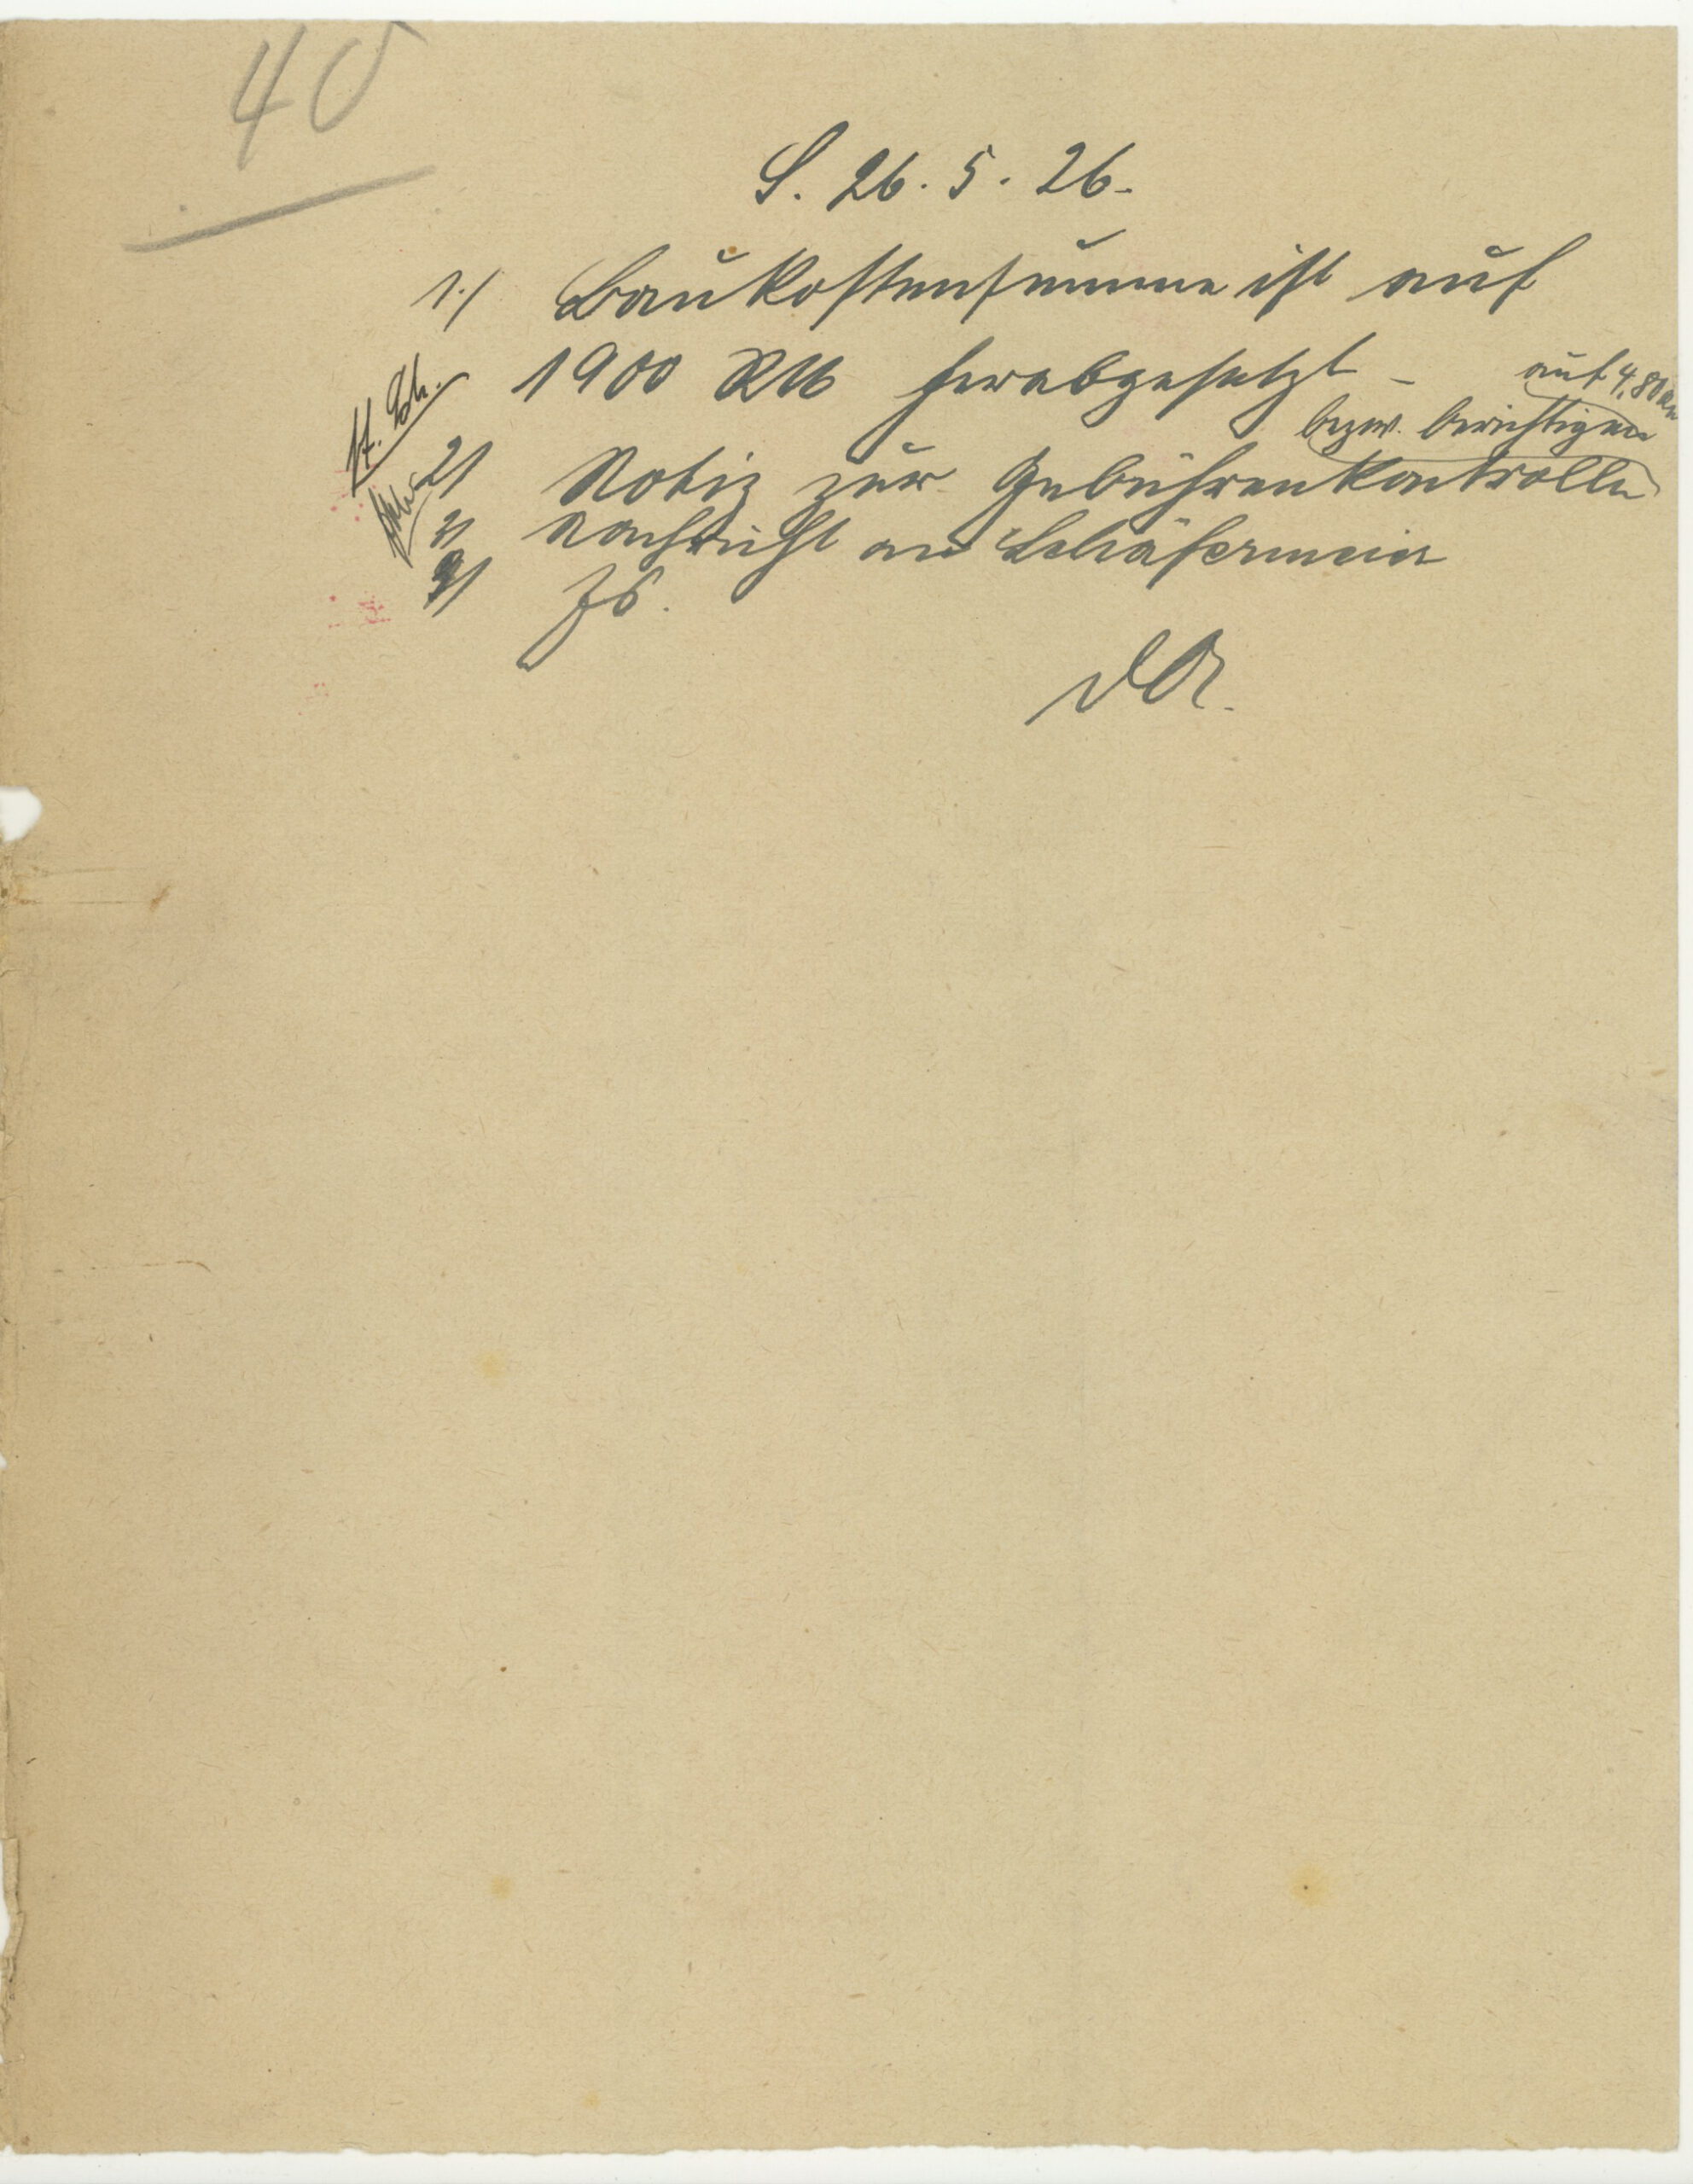 40
S. 26. 5. 26.
1./ Baukostensumme ist auf
1900 RM herabgesetzt –
auf 4,80 RM
bezw. berichtigen
2/ Notiz zur Gebührenkontrolle
3/ Nachricht an Schäfermeier
4/ Z6.